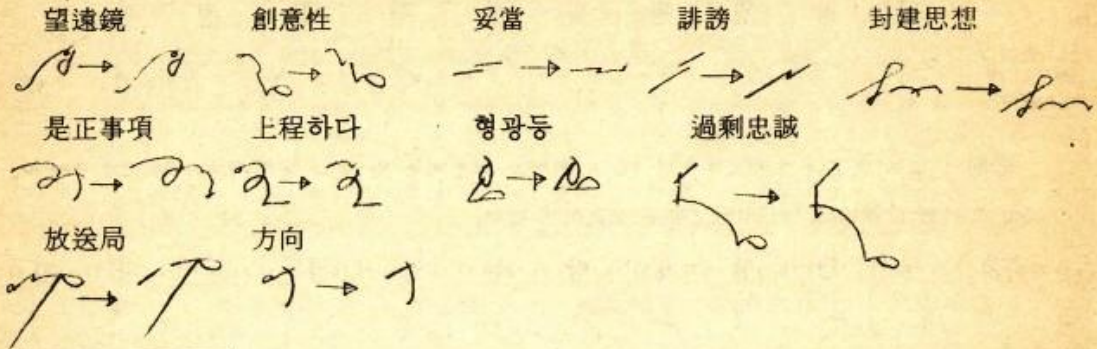 望遠鏡 創意性 妥當 誹謗 封建思想
是正事項 上程하다 형광등 過剩忠誠
放送局 方向